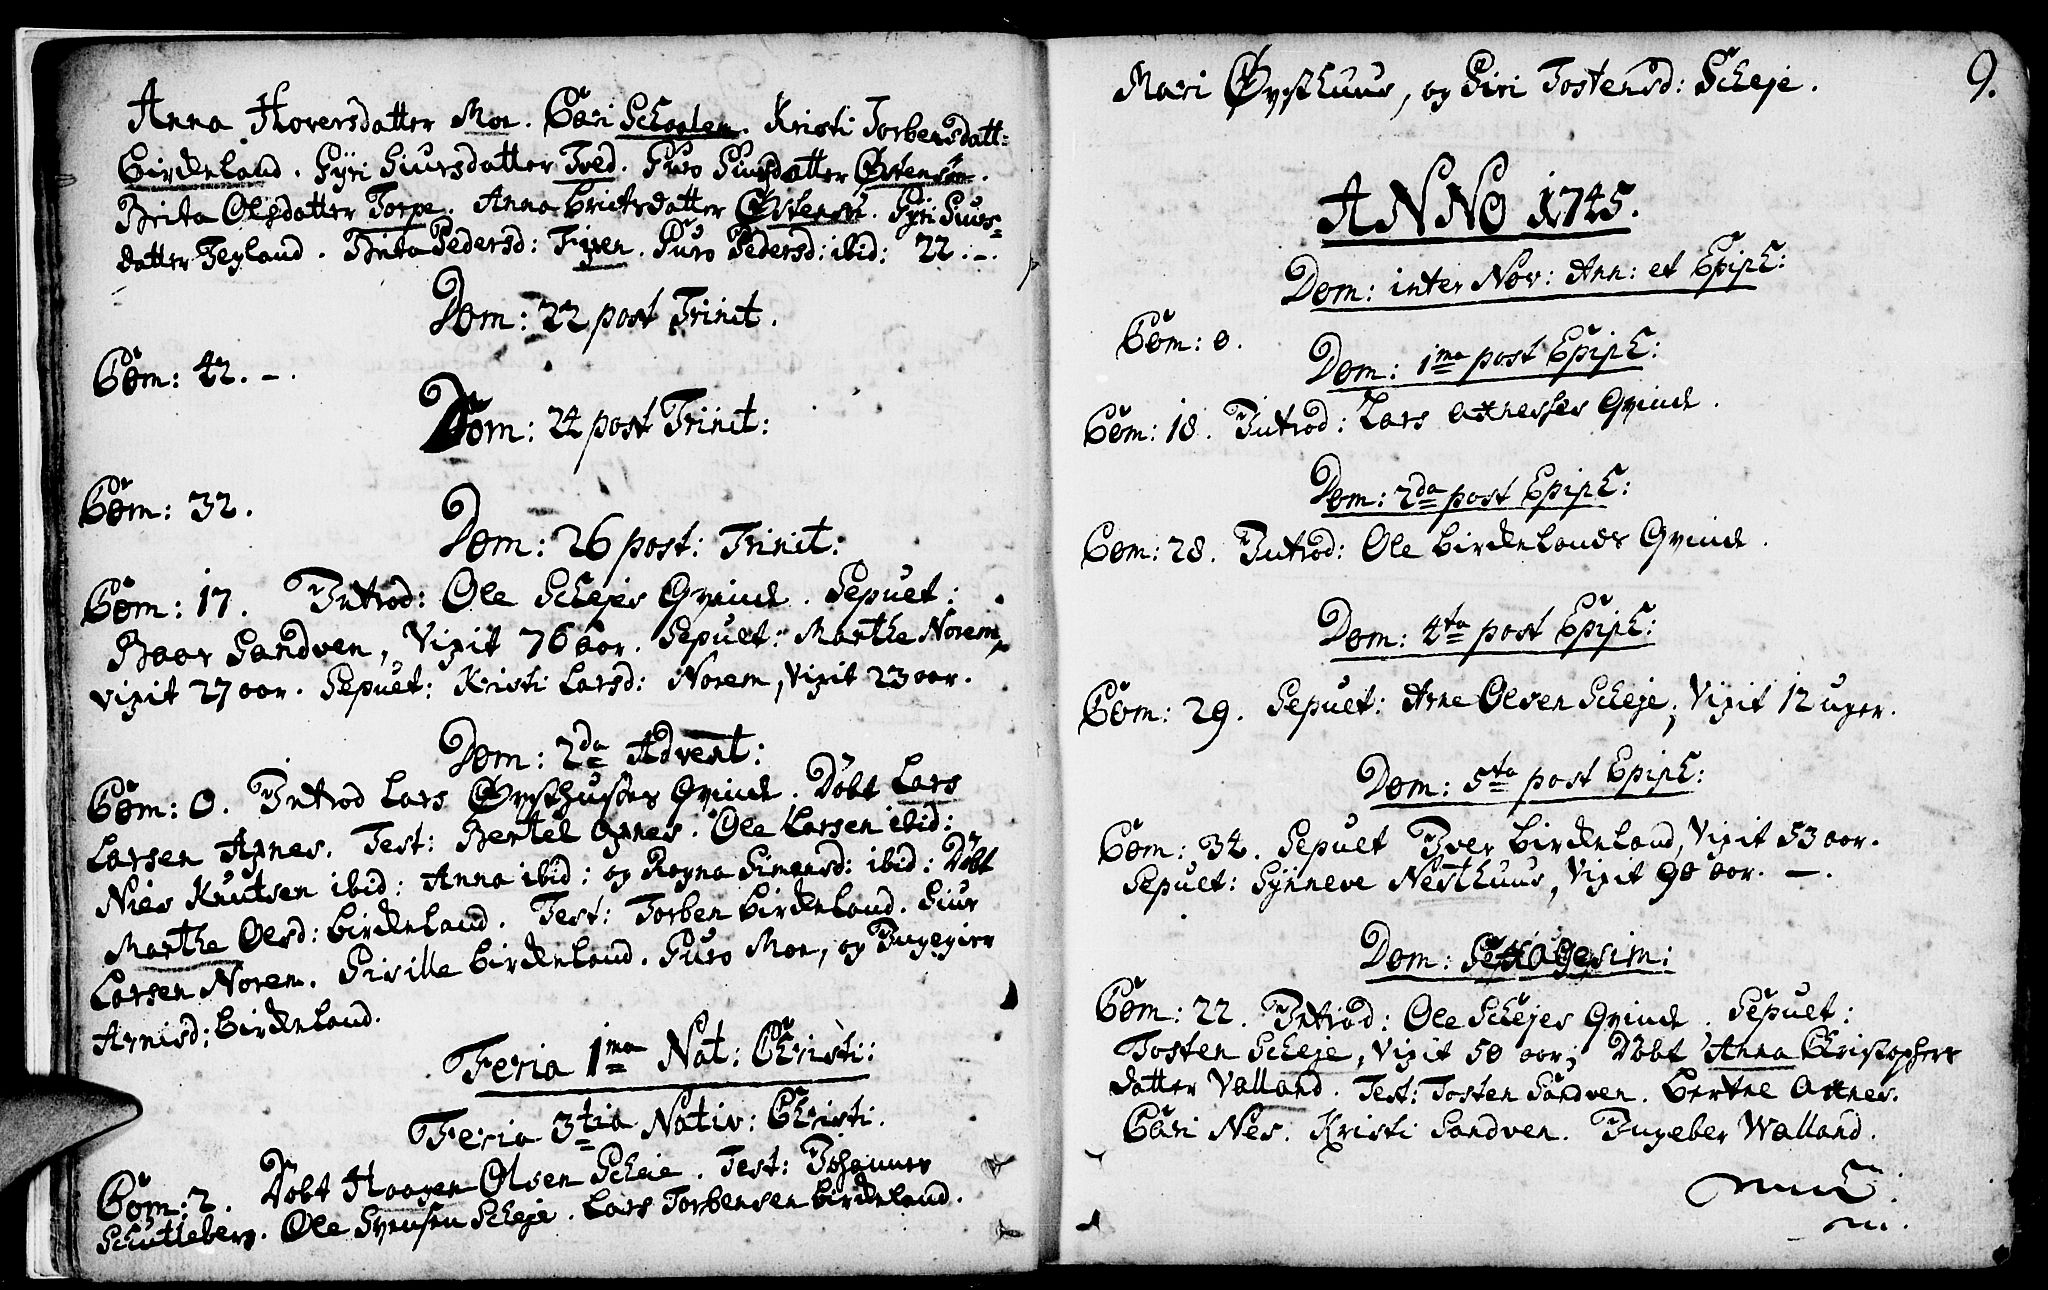 Anna Thoresdatter Moe. Cari Schaalen. Kristi Torbensdatt=
Birckeland. Gyri Siursdatter Tved. Guro Siursdatter Østensøe.
Brita Olsdatter Torpe. Anna brictsdatter Østensø. Gyri Siurs=
datter Teyland. Brita Pedersd: Fixen. Guro Pedersd: ibid: 22. –.
Dom: 22 post Trinit.
Com: 42. –.
Dom: 24 post Trinit:
Com: 32.
Dom: 26 post: Trinit:
Com: 17. Introd: Ole Schejes Qvinde. Sepult:
Baar Sandven, Vixit 76 aar. Sepult: Marthe Norem,
vixit 27 aar. Sepult: Kristi Larsd: Norem, Vixit 23 aar.
Dom: 2da Advent:
Com: 0. Introd Lars Øvsthuses Qvinde. Döbt Lars
Larsen Axnes. Test: Bertel Axnes. Ole Larsen ibid:
Niels Knutsen ibid: Anna ibid: og Ragna Simensd: ibid: Döbt
Marthe Olsd: birckeland. Test: Torben birckeland. Siur
Larsen Norem. Sisille birckeland. Guro Moe, og Ingegier
Arnisd: birckeland.
Feria 1ma Nat: Christi:
Feria 3tia Nativ: Christi:
Com: 2. Döbt Haagen Olsen Scheie. Test: Johannes
Schutleberg. Ole Svensen Scheje. Lars Torbensen birckeland.
Mari Øvsthuus, og Siri Tostensd: Scheje. 9.
ANNO 1745.
Dom: inter Nov: Ann: et Epiph:
Com: 0.
Dom: 1ma post Epiph:
Com: 18. Introd: Lars Axneses Qvinde.
Dom: 2da post Epiph:
Com: 28. Introd: Ole birckelands Qvinde.
Dom: 4ta post Epiph:
Com: 29. Sepult: Arne Olsen Scheje, Vixit 12 uger.
Dom: 5ta post Epiph:
Com: 32. Sepult Iver birckeland, Vixit 53 aar.
Sepult: Synneve Nesthuus, Vixit 90 aar. –.
Dom: Septuagesim:
Com: 22. Introd: Ole Schejes Qvinde. Sepult:
Tosten Scheje, vixit 50 aar; Döbt Anna Christophers
datter Valland. Test: Tosten Sandven. bertne Axnes.
Cari Nes. Kristi Sandven. Ingeber Walland.